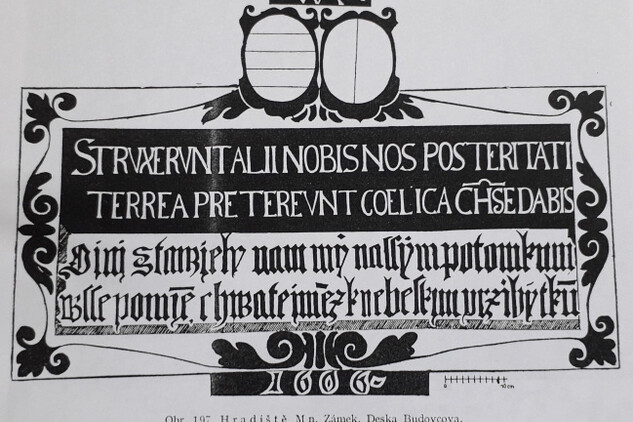 STRVXERVNT ALII NOBIS NOS POSTERITATI
TERREA PRETEREVNT COELICA CH̄SE DABIS
Gini Stawiely nam mý nassým potomkum
wsse chwateimēz k nebeskym przibytkū
1606-
10 cm
Obr. 197. Hradiště M n. Zámek. Deska Budovcova.